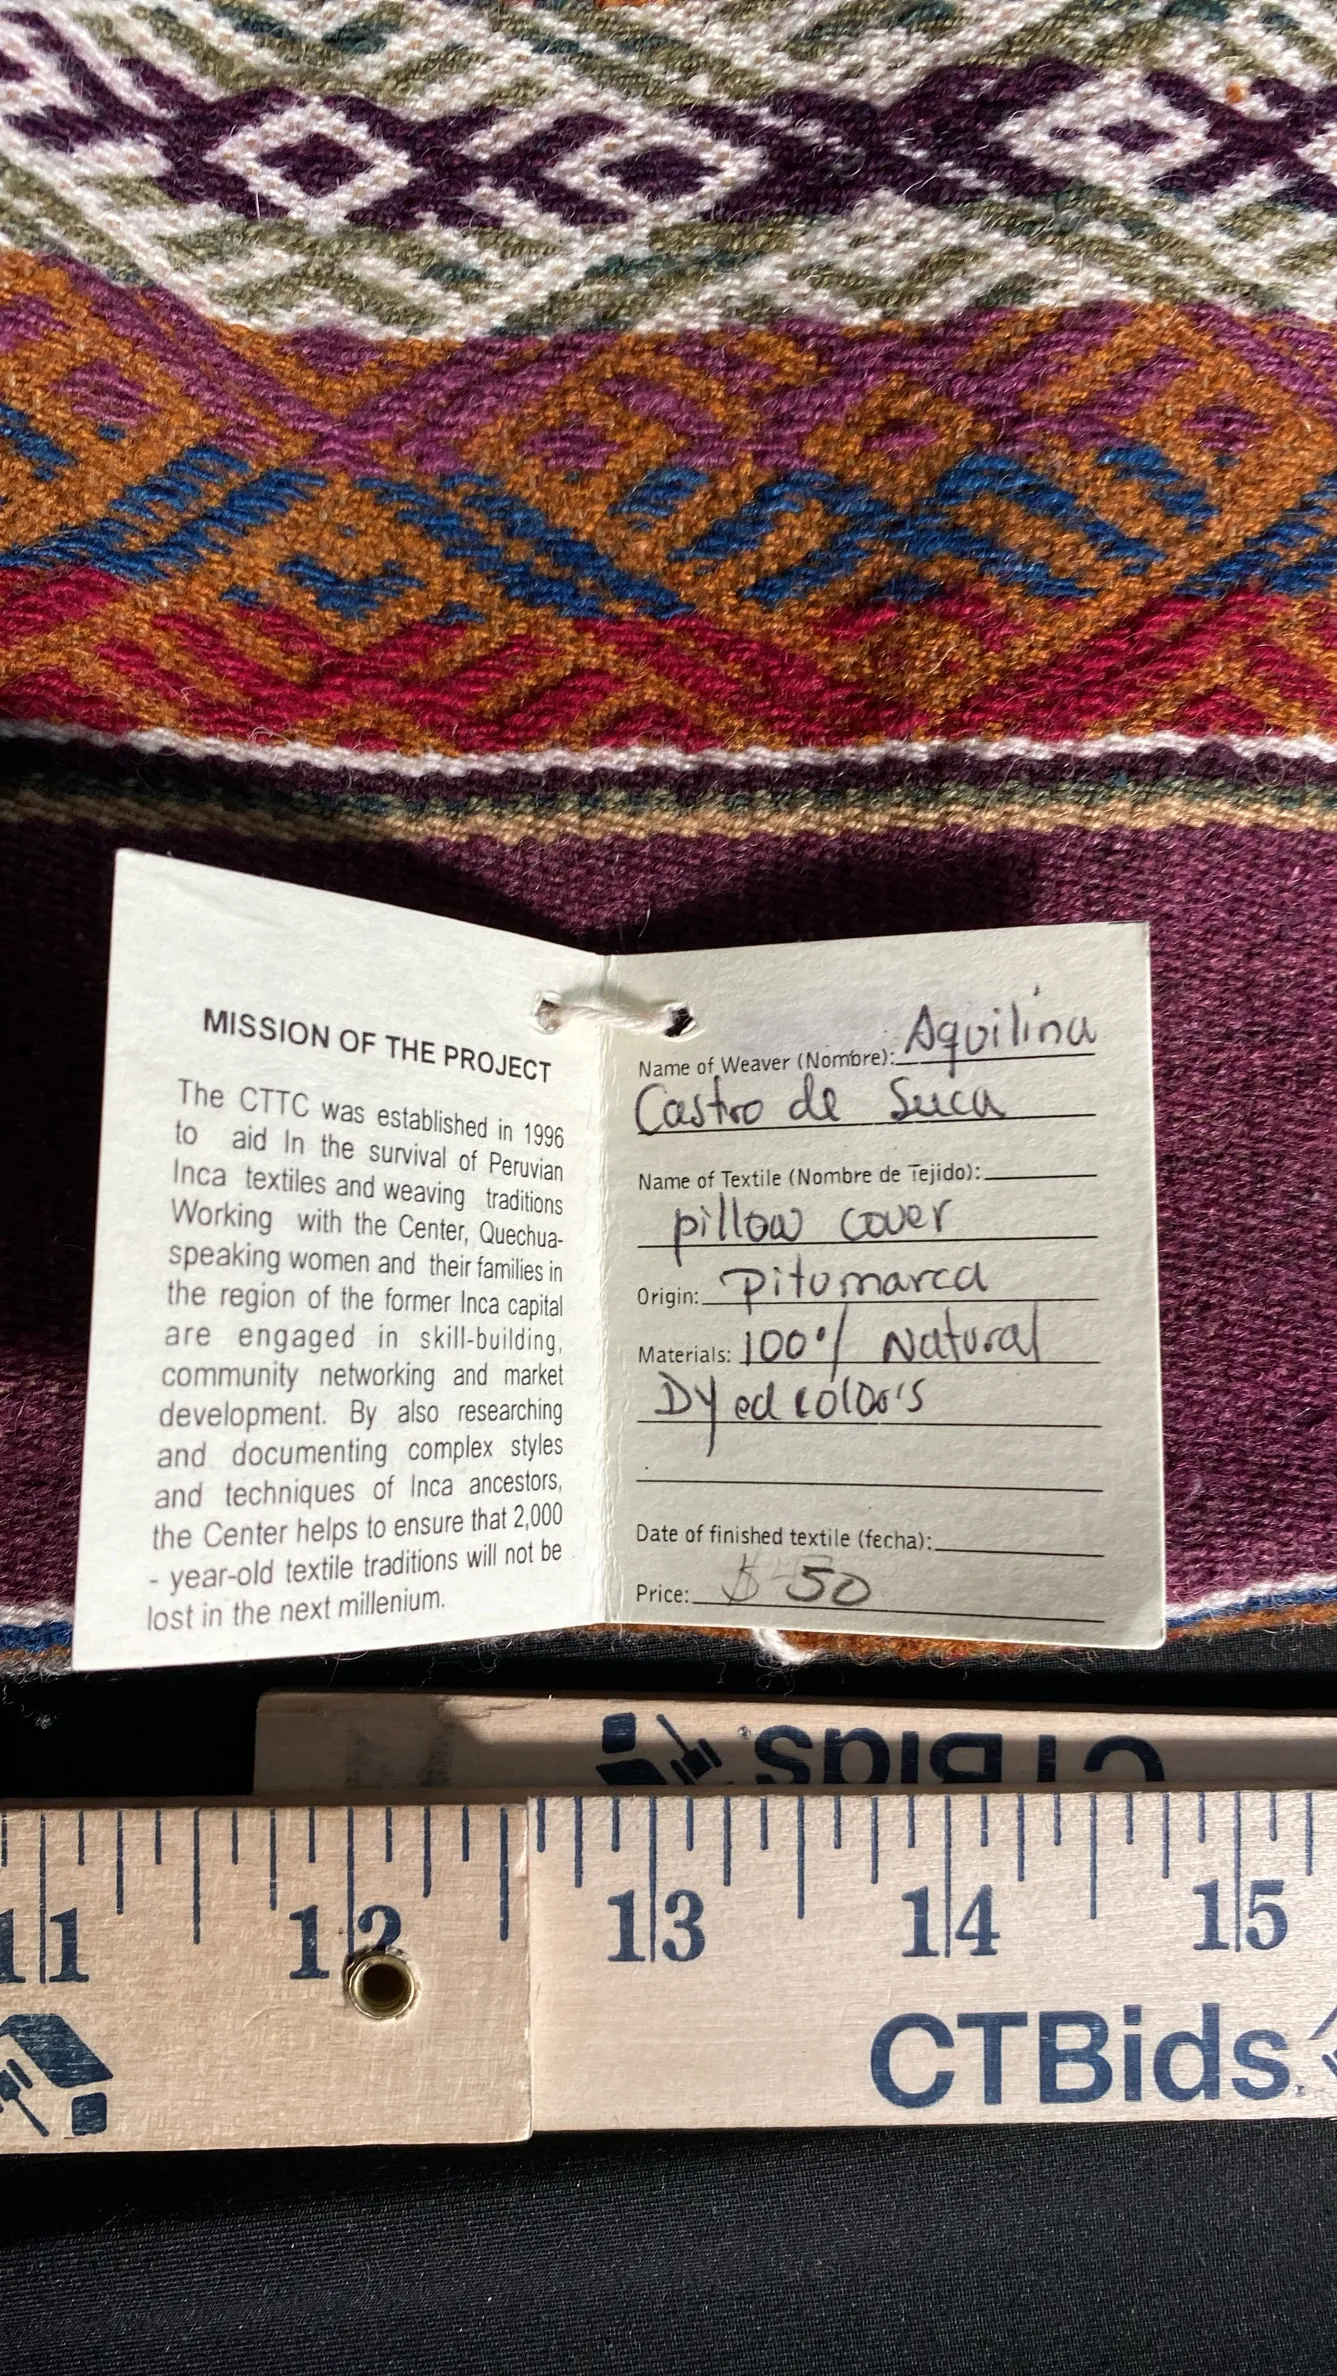 MISSION OF THE PROJECT
The CTTC was established in 1996
to aid In the survival of Peruvian
Inca textiles and weaving traditions
Working with the Center, Quechua-
speaking women and their families in
the region of the former Inca capital
are engaged in skill-building,
community networking and market
development. By also researching
and documenting complex styles
and techniques of Inca ancestors,
the Center helps to ensure that 2,000
- year-old textile traditions will not be
lost in the next millenium.
Name of Weaver (Nombre): Aquilina
Castro de Suca
Name of Textile (Nombre de Tejido):
pillow cover
Origin: Pitumarca
Materials: 100% Natural
Dyed color's
Date of finished textile (fecha):
Price: $ 50
CTBids
11 12 13 14 15
CTBids